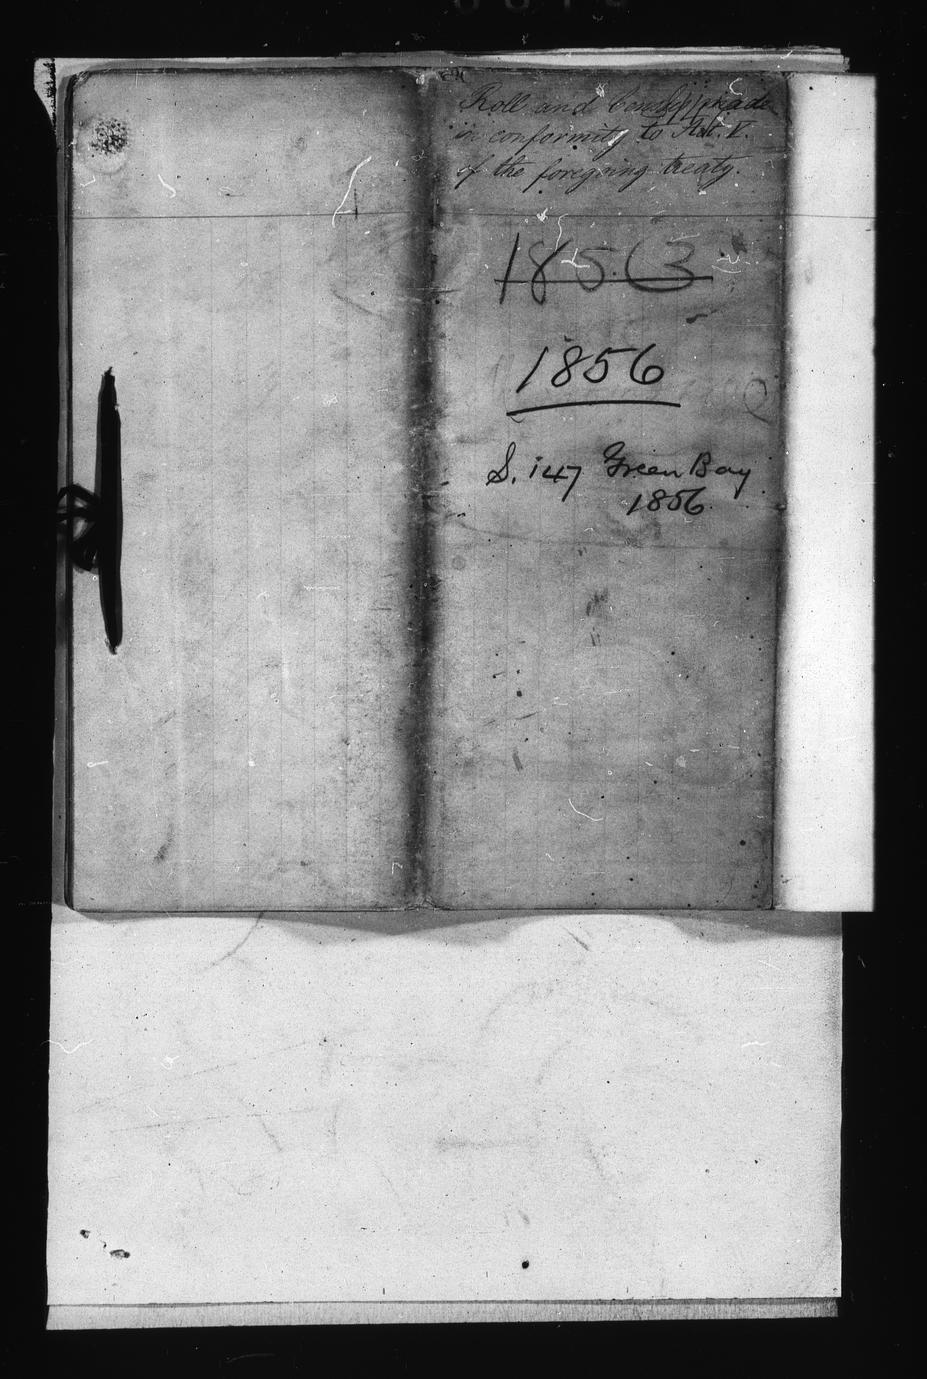 Roll and Census made
in conformity to Art. V.
of the foregoing treaty.
1856
S. 147 Green Bay
1856.